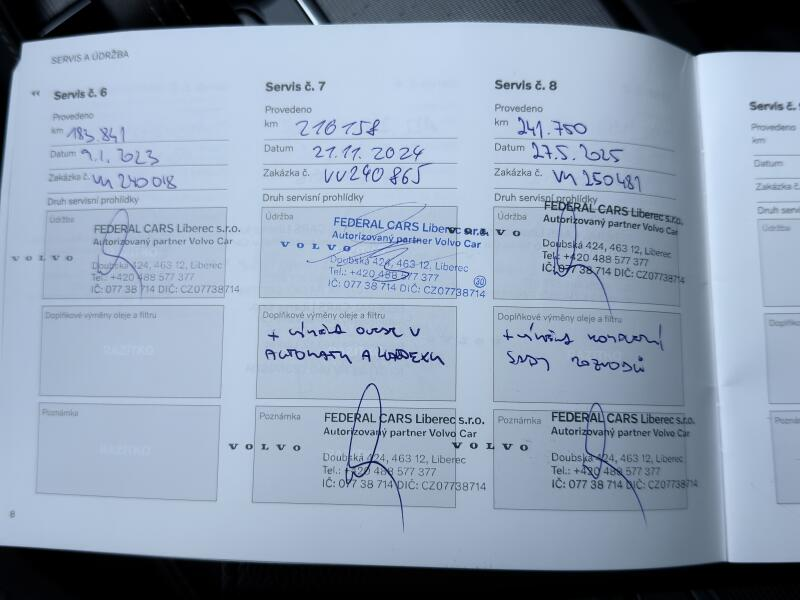 SERVIS A ÚDRŽBA
Servis č. 6
Provedeno
km 183.841
Datum 9.1.2023
Zakázka č. VV240018
Druh servisní prohlídky
Údržba
FEDERAL CARS Liberec s.r.o.
Autorizovaný partner Volvo Car
VOLVO
Doubská 424, 463 12, Liberec
Tel.: +420 488 577 377
IČ: 077 38 714 DIČ: CZ07738714
Doplňkové výměny oleje a filtru
RAZÍTKO
Poznámka
RAZÍTKO
8
Servis č. 7
Provedeno
km 216158
Datum 21.11.2024
Zakázka č. VV240865
Druh servisní prohlídky
Údržba
FEDERAL CARS Liberec s.r.o.
Autorizovaný partner Volvo Car
VOLVO
Doubská 424, 463 12, Liberec
Tel.: +420 488 577 377
IČ: 077 38 714 DIČ: CZ07738714
30
Doplňkové výměny oleje a filtru
+ výměna oleje v
automatu a haldexu
Poznámka
FEDERAL CARS Liberec s.r.o.
Autorizovaný partner Volvo Car
VOLVO
Doubská 424, 463 12, Liberec
Tel.: +420 488 577 377
IČ: 077 38 714 DIČ: CZ07738714
Servis č. 8
Provedeno
km 241.750
Datum 27.5.2025
Zakázka č. VV250481
Druh servisní prohlídky
Údržba
FEDERAL CARS Liberec s.r.o.
Autorizovaný partner Volvo Car
VOLVO
Doubská 424, 463 12, Liberec
Tel.: +420 488 577 377
IČ: 077 38 714 DIČ: CZ07738714
Doplňkové výměny oleje a filtru
+ výměna kompletní
sady rozvodů
Poznámka
FEDERAL CARS Liberec s.r.o.
Autorizovaný partner Volvo Car
VOLVO
Doubská 424, 463 12, Liberec
Tel.: +420 488 577 377
IČ: 077 38 714 DIČ: CZ07738714
Servis č.
Provedeno
km
Datum
Zakázka č.
Druh servisní
Údržba
Doplňkové
Poznámka